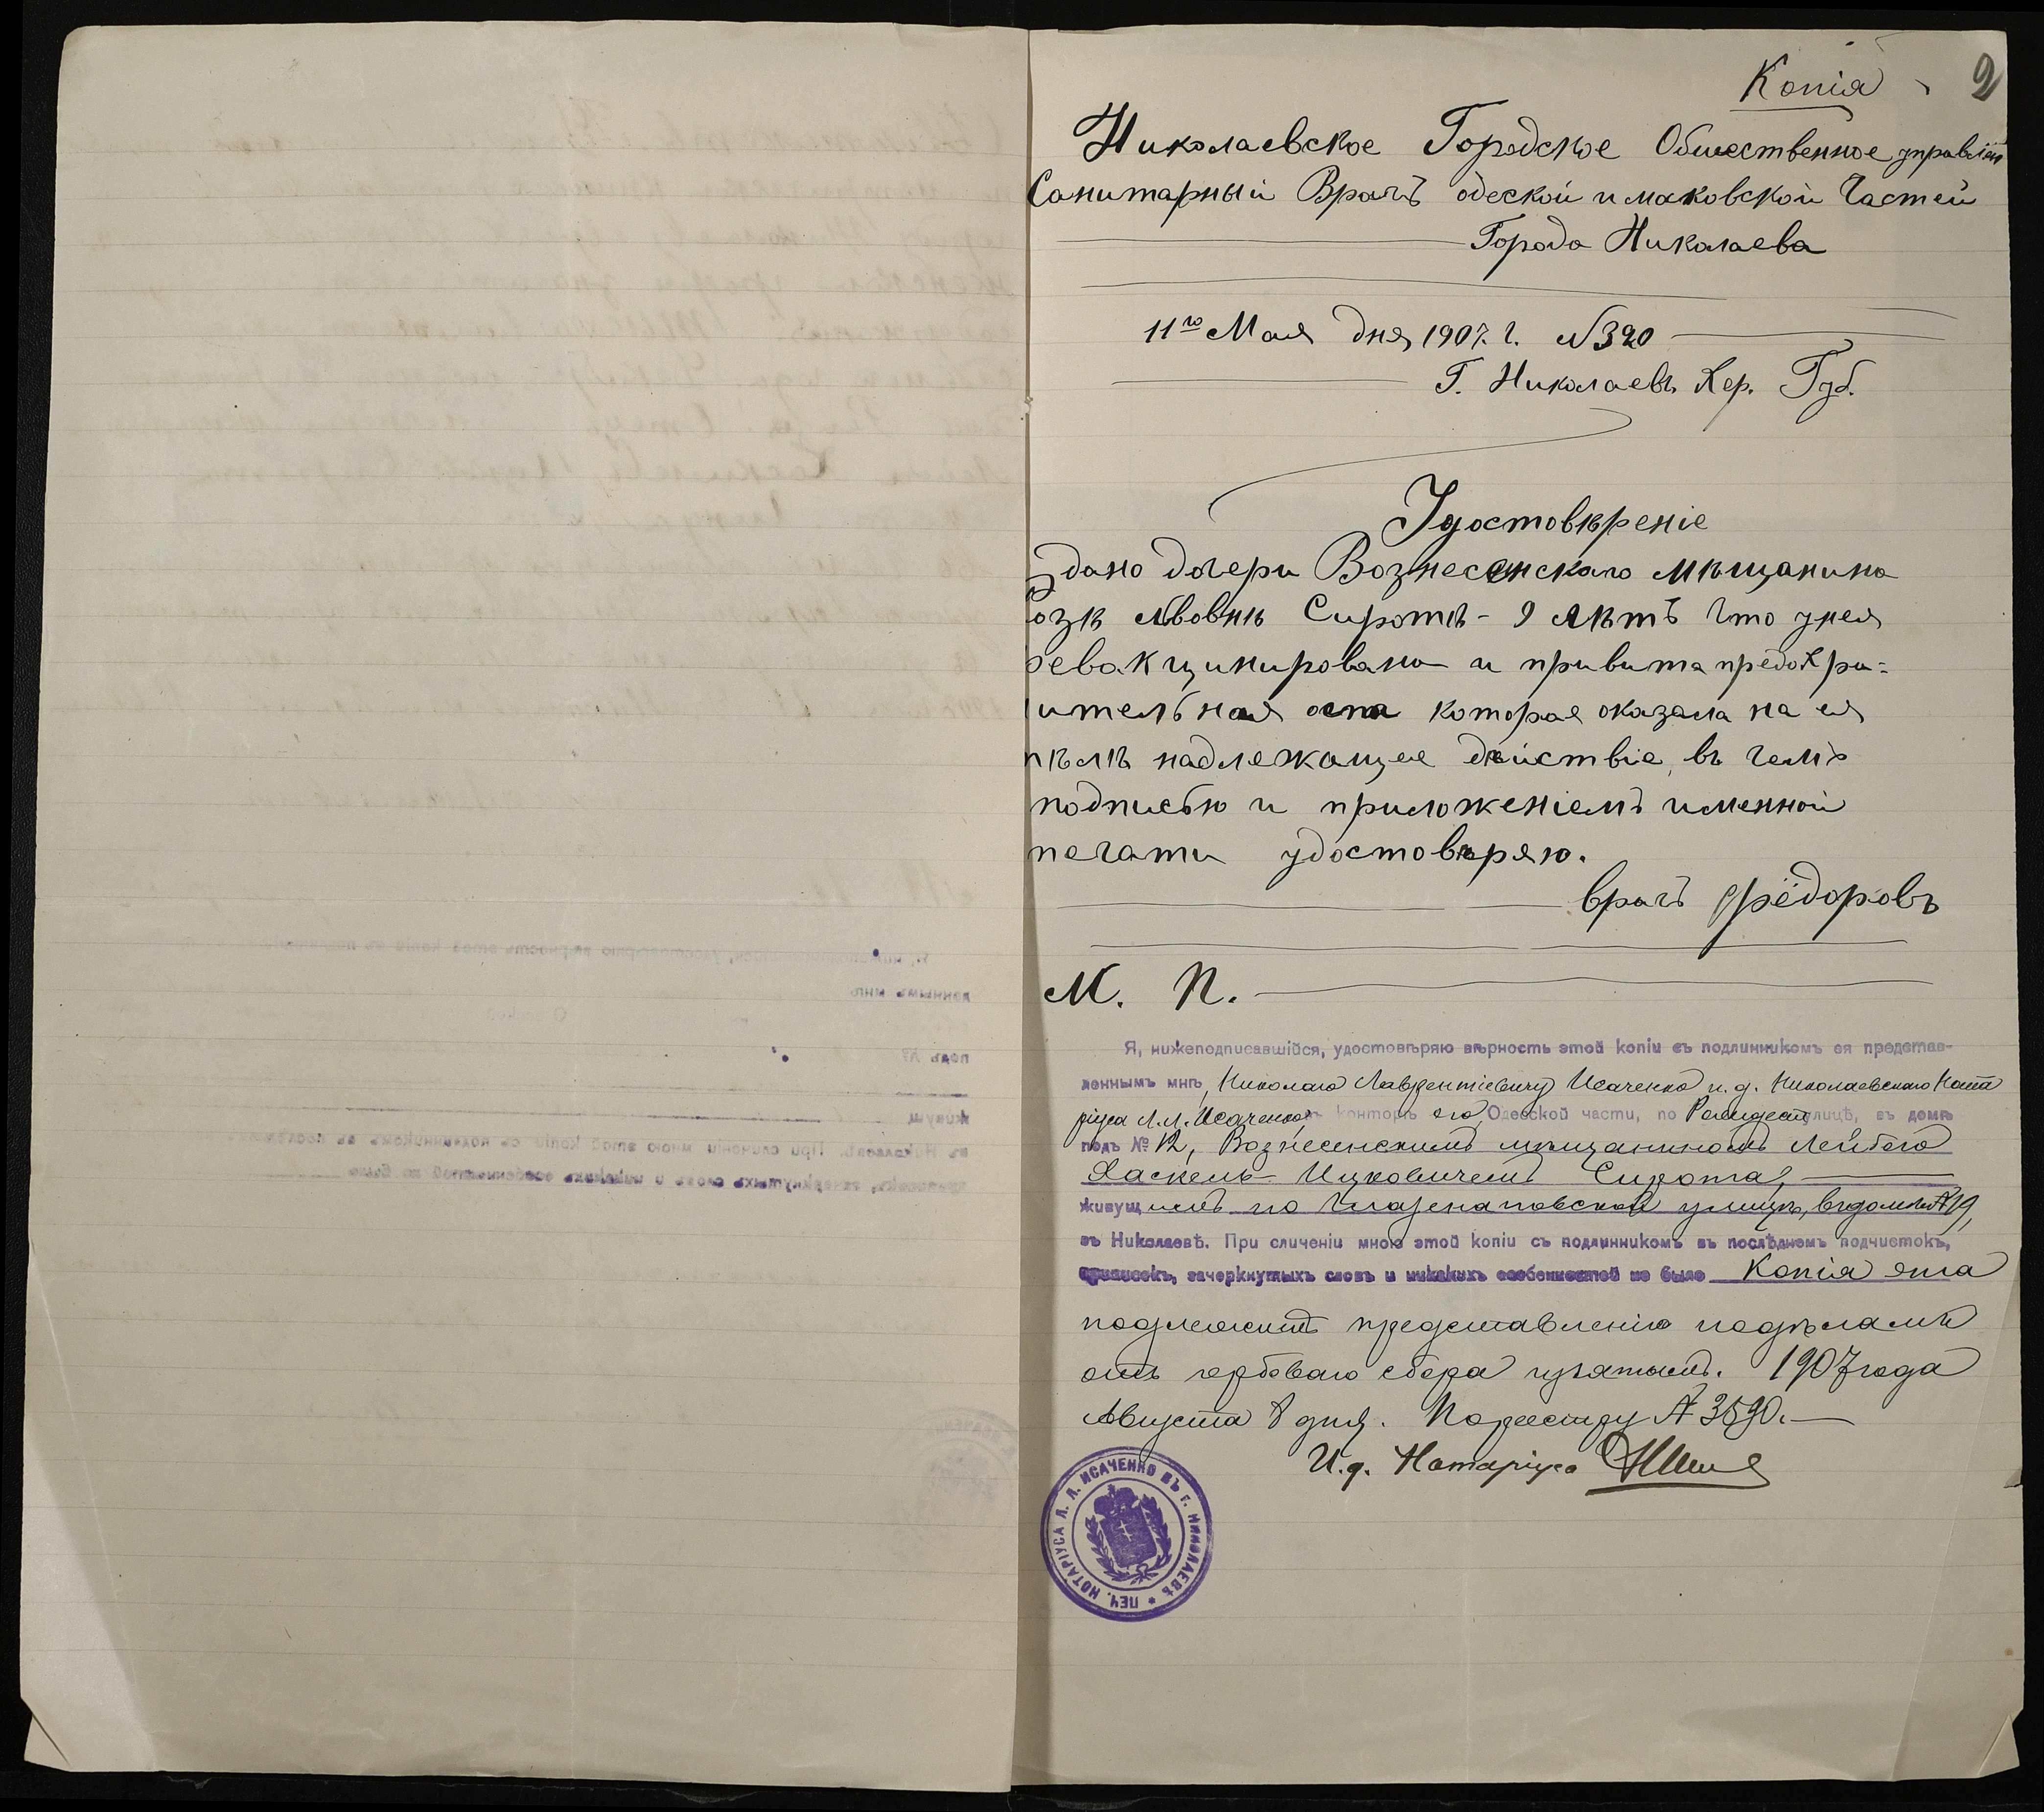 Копія
2
Николаевское Городское Общественное управлен
Санитарный Врачъ одеской и московской Частей
Города Николаева
11го Мая дня 1907. г. № 320
Г. Николаевъ Хер. Губ.
Удостовѣреніе
дано дочери Вознесенскаго мѣщанина
озѣ Львовнѣ Сиротѣ - 9 лѣтъ что у нея
ревакцинирована и привита предохра=
ительная оспа которая оказала на ея
тѣлѣ надлежащее дѣйствіе, въ чемъ
подписью и приложеніемъ именной
печати удостовѣряю.
врачъ Фёдоровъ
М. П.
Я, нижеподписавшійся, удостовѣряю вѣрность этой копіи съ подлинникомъ ея представ-
леннымъ мнѣ, Николаю Лаврентіевичу Исаченко и. д. Николаевскаго Нота
ріуса Л. Л. Исаченко, въ конторѣ его, Одесской части, по улицѣ, въ домѣ
подъ № 12, Вознесенскимъ мѣщаниномъ Лейбою
Хаскель-Ицковичемъ Сирота,
живущимъ по улицѣ, въ домѣ № 19,
въ Николаевѣ. При сличеніи мною этой копіи съ подлинникомъ въ послѣднемъ подчистокъ,
приписокъ, зачеркнутыхъ словъ и никакихъ особенностей не было Копія эта
подлежитъ представленію по дѣламъ
отъ гербоваго сбора изъятымъ. 1907 года
Августа 8 дня. По реестру № 3590.
И. д. Нотаріуса
ПЕЧ. НОТАРІУСА Л. Л. ИСАЧЕНКО ВЪ Г. НИКОЛАЕВѢ